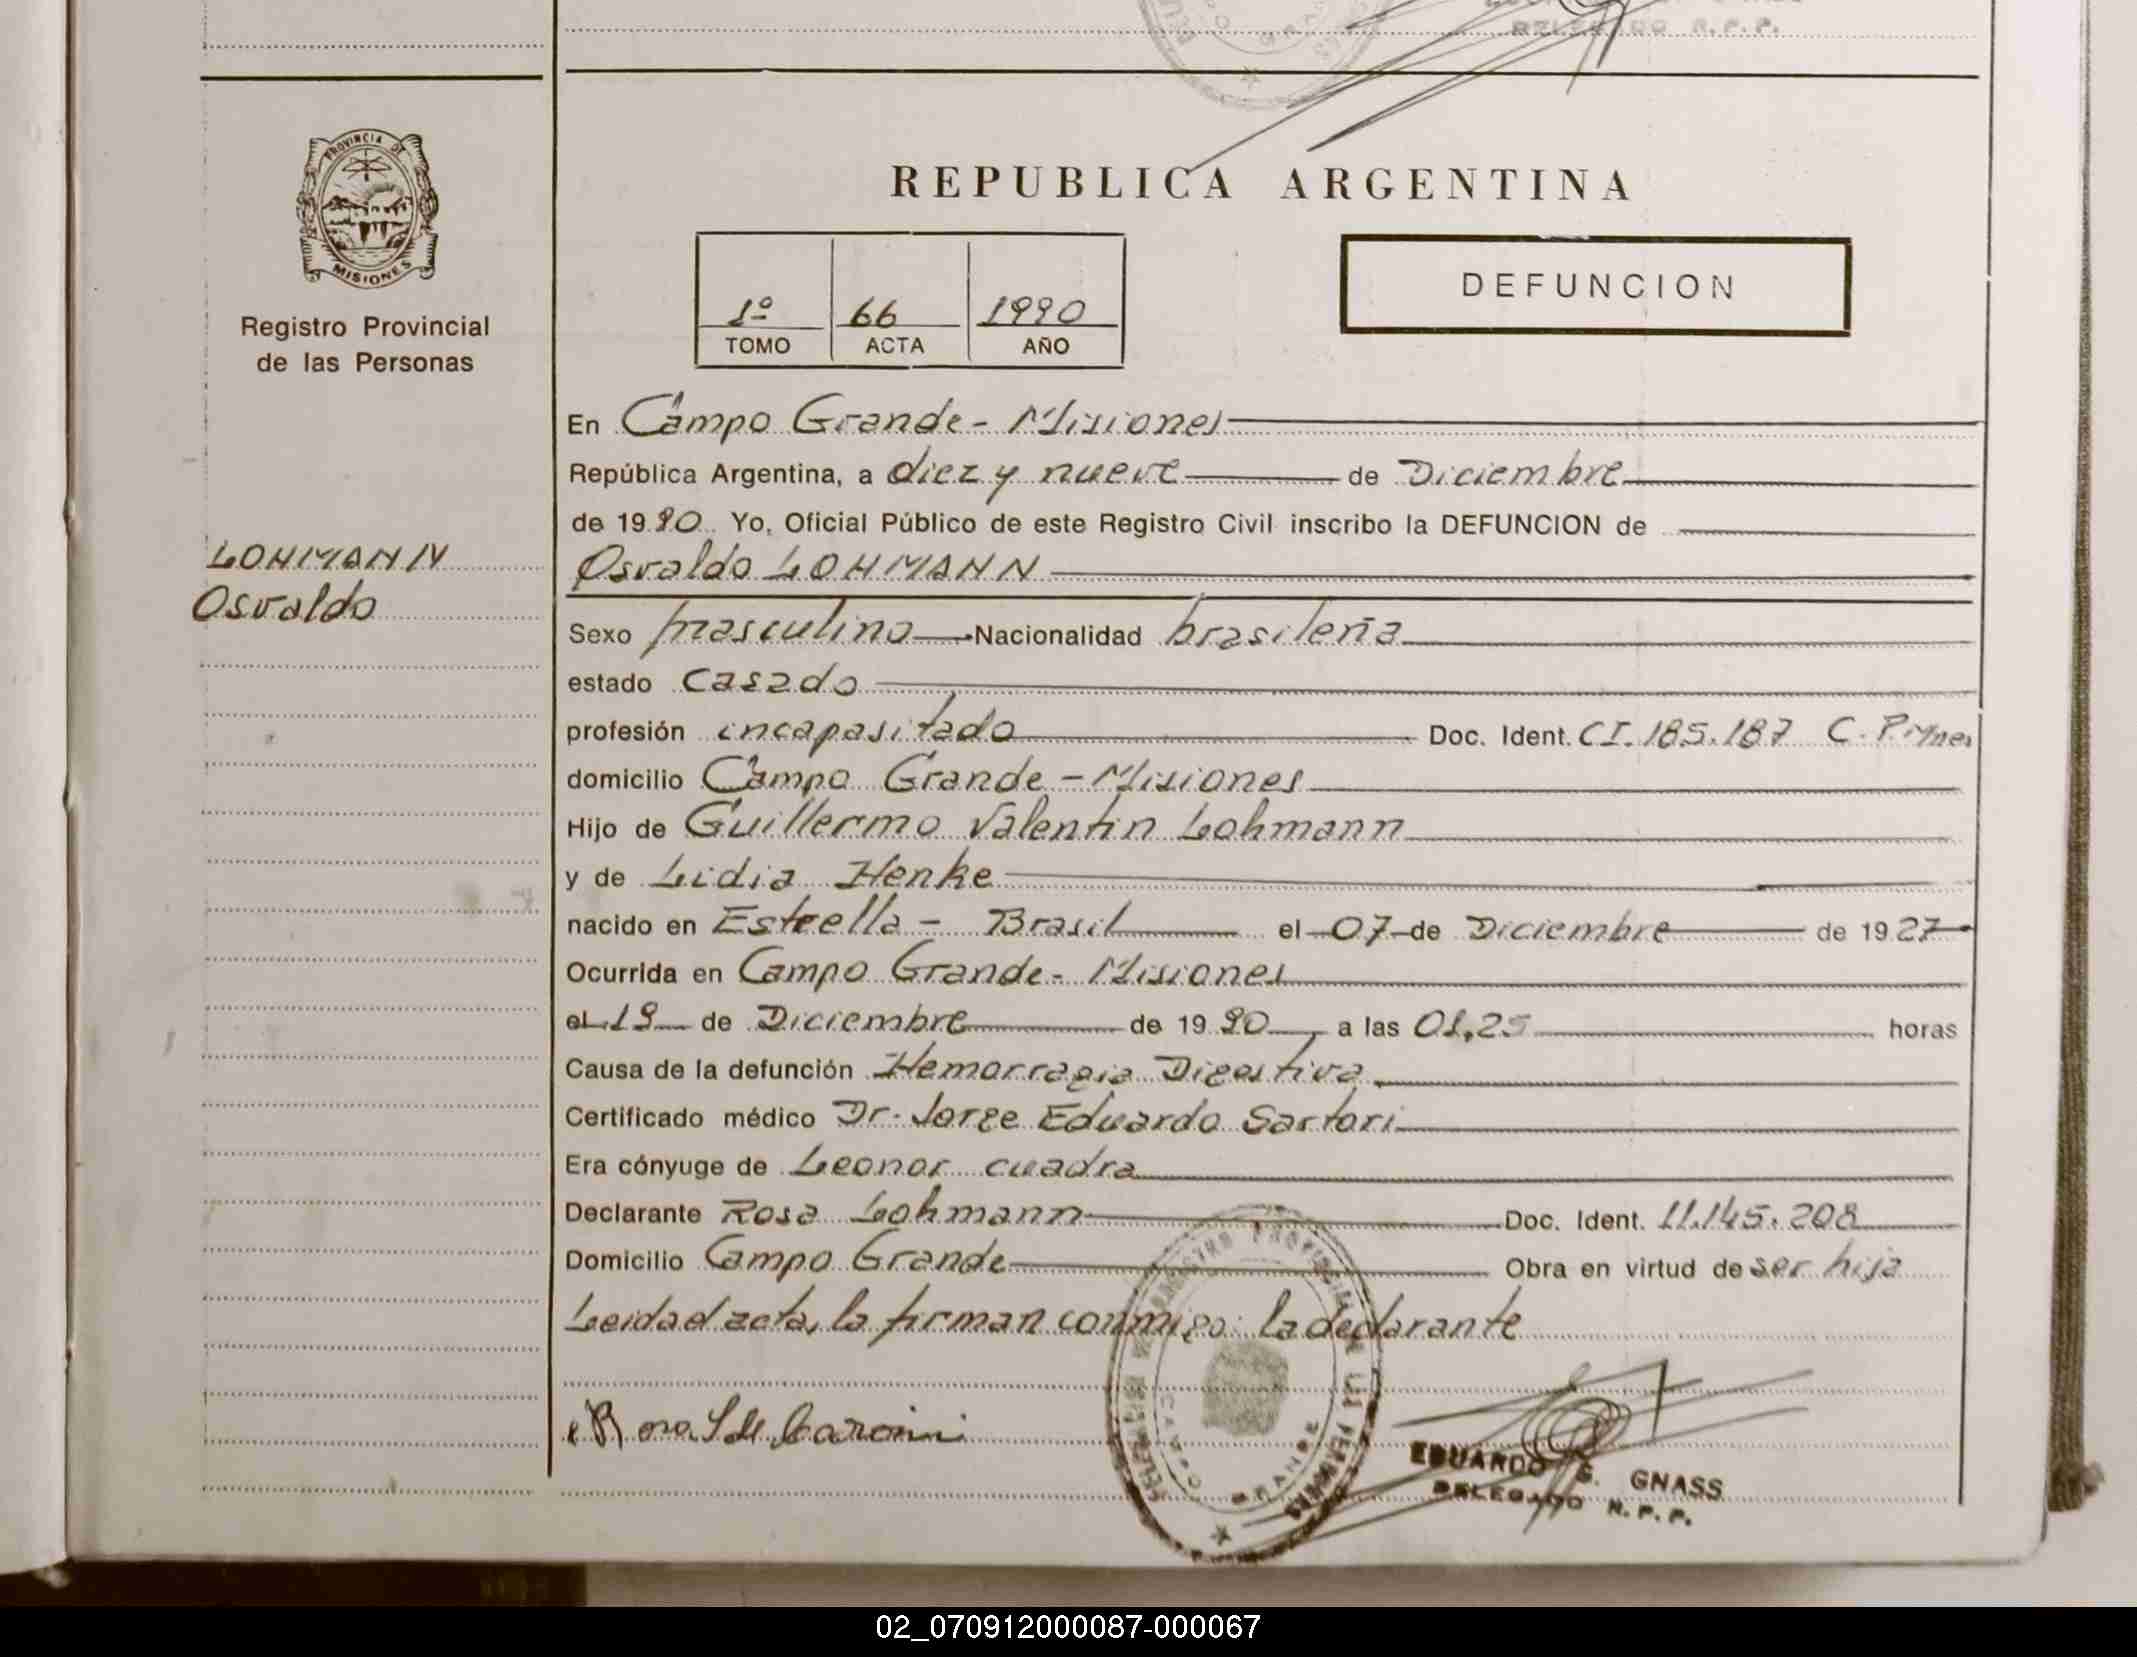 DELEGADO R.P.P.
PROVINCIA DE
MISIONES
Registro Provincial
de las Personas
REPUBLICA ARGENTINA
1º 66 1990
TOMO ACTA AÑO
DEFUNCION
En Campo Grande - Misiones
República Argentina, a diez y nueve de Diciembre
de 1990 Yo, Oficial Público de este Registro Civil inscribo la DEFUNCION de
LOHMANN
Osvaldo
Osvaldo LOHMANN
Sexo masculino Nacionalidad brasileña
estado Casado
profesión incapasitado Doc. Ident. CI. 185.187 C. P. Mnes
domicilio Campo Grande - Misiones
Hijo de Guillermo Valentin Lohmann
y de Lidia Henke
nacido en Estrella - Brasil el 07 de Diciembre de 1927
Ocurrida en Campo Grande - Misiones
el 19 de Diciembre de 1990, a las 01,25 horas
Causa de la defunción Hemorragia Digestiva
Certificado médico Dr. Jorge Eduardo Sartori
Era cónyuge de Leonor cuadra
Declarante Rosa Lohmann Doc. Ident. 11.145.208
Domicilio Campo Grande Obra en virtud de ser hija
Leida el acta, la firman conmigo: la declarante
EDUARDO S. GNASS
DELEGADO R.P.P.
02_070912000087-000067